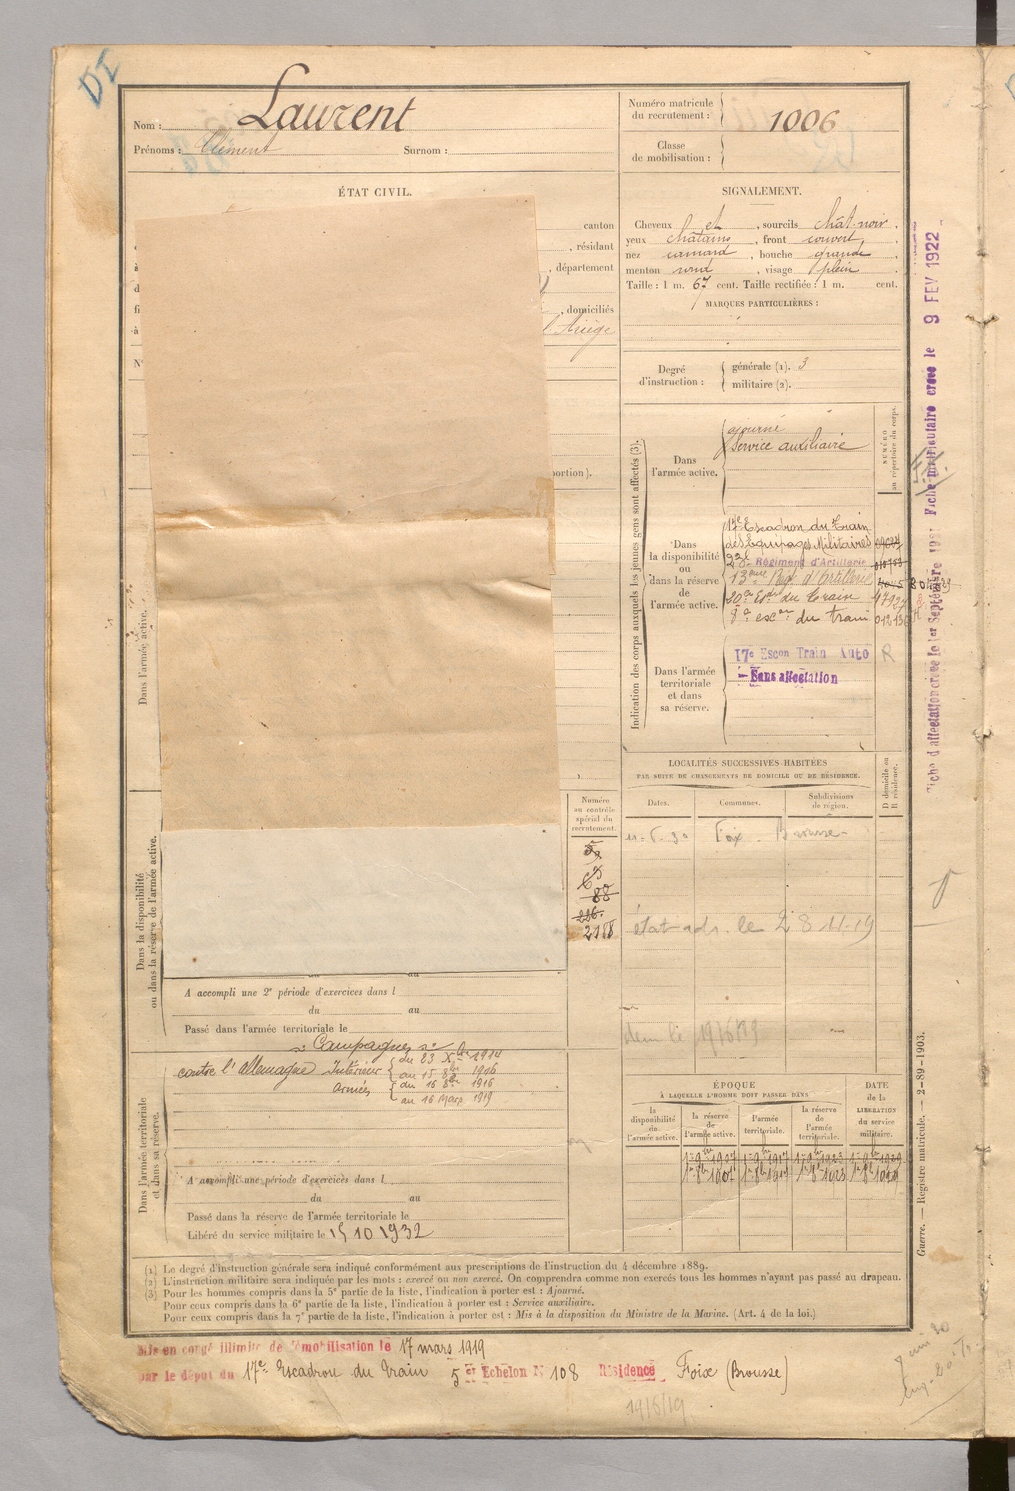 DI
Nom : Laurent
Prénoms : Clément Surnom :
Numéro matricule
du recrutement : 1006
Classe
de mobilisation :
ÉTAT CIVIL.
canton
, résidant
, département
, domiciliés
l'Ariège
N°
portion).
SIGNALEMENT.
Cheveux et , sourcils chât-noir .
yeux châtains , front couvert ,
nez camard , bouche grande ,
menton rond , visage plein .
Taille : 1 m. 67 cent. Taille rectifiée : 1 m. cent.
MARQUES PARTICULIÈRES :
Degré
d'instruction :
générale (1). 3
militaire (2).
Indication des corps auxquels les jeunes gens sont affectés (3).
NUMÉRO
au répertoire du corps.
Dans
l'armée active.
ajourné
Service auxiliaire
Dans
la disponibilité
ou
dans la réserve
de
l'armée active.
17e Escadron du Train
des Équipages Militaires
23e Régiment d'Artillerie
13ème Régt d'Artillerie
20e Esc du Train
8e escon du train
Dans l'armée
territoriale
et dans
sa réserve.
17e Escon Train Auto R
Sans affectation
Dans l'armée active.
LOCALITÉS SUCCESSIVES HABITÉES
PAR SUITE DE CHANGEMENTS DE DOMICILE OU DE RÉSIDENCE.
Dates.
Communes.
Subdivisions
de région.
D domicile ou
R résidence.
Foix - Brousse -
état adr. le 28 11-19
Numéro
au contrôle
spécial du
recrutement.
88
226
2188
Dans la disponibilité
ou dans la réserve de l'armée active.
au
A accompli une 2e période d'exercices dans l
du au
Passé dans l'armée territoriale le
Campagnes
contre l'Allemagne Intérieur
du 23 Xbre 1914
au 15 8bre 1916
armées
du 16 8bre 1916
au 16 Mars 1919
Dans l'armée territoriale
et dans sa réserve.
A accompli une période d'exercices dans l
du au
Passé dans la réserve de l'armée territoriale le
Libéré du service militaire le 15 10 1932
ÉPOQUE
À LAQUELLE L'HOMME DOIT PASSER DANS
la
disponibilité
de
l'armée active.
la réserve
de
l'armée active.
l'armée
territoriale.
la réserve
de
l'armée
territoriale.
DATE
de la
LIBÉRATION
du service
militaire.
(1) Le degré d'instruction générale sera indiqué conformément aux prescriptions de l'instruction du 4 décembre 1889.
(2) L'instruction militaire sera indiquée par les mots : exercé ou non exercé. On comprendra comme non exercés tous les hommes n'ayant pas passé au drapeau.
(3) Pour les hommes compris dans la 5e partie de la liste, l'indication à porter est : Ajourné.
Pour ceux compris dans la 6e partie de la liste, l'indication à porter est : Service auxiliaire.
Pour ceux compris dans la 7e partie de la liste, l'indication à porter est : Mis à la disposition du Ministre de la Marine. (Art. 4 de la loi.)
Mis en congé illimité de démobilisation le 17 mars 1919
par le dépôt du 17e Escadron du Train 5 er Echelon N° 108 Résidence Foix (Brousse)
14/6/19
Fiche d'affectation créée le 1er Septembre Fiche matriculaire créée le 9 FEV 1922
Guerre. — Registre matricule. — 2-89-1903.